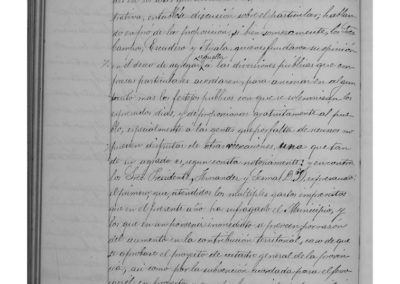 trativa, entabló discusión sobre el particular, hablan-
do en pro de la proposición, si bien someramente, los Sres
Camino, Escudero y Ayala, quienes fundaron su opinión
en el deseo de ayudar a las diversiones públicas que em-
presas particulares acordaren, para animar en al
tanto mas los festejos publicos con que se solemnizan los
expresados dias, y de proporcionar gratuitamente al pue-
blo, especialmente a las gentes que por falta de recursos no
pueden disfrutar de otras ocasiones, una que tan
de su agrado es, segun consta notoriamente; y en contra
los Sres. Presidente, Fernandez y expresando
el primero que atendidos los multiples gastos imprevistos
que en el presente año ha sufragado el Municipio, y
los que en an inmediato a provenir
del aumento en la contribucion territorial, caso de que
se aprobare el proyecto de catastro general de la provin-
cia, asi como por la subvención acordada para el ferro
carril en proyecto